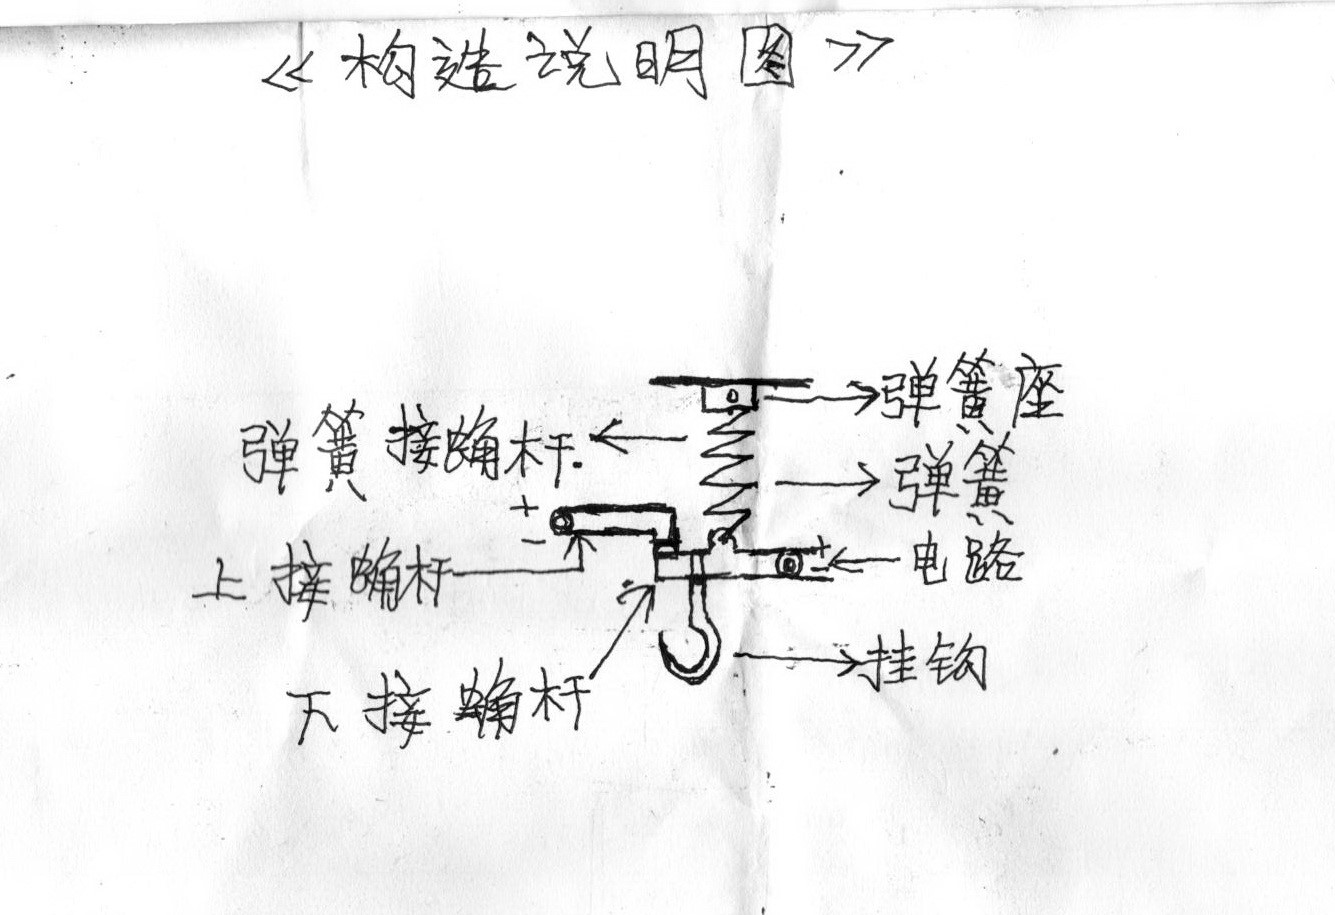 《构造说明图》
弹簧座
弹簧接触杆.
弹簧
+
-
上接触杆
+
-
电路
挂钩
下接触杆